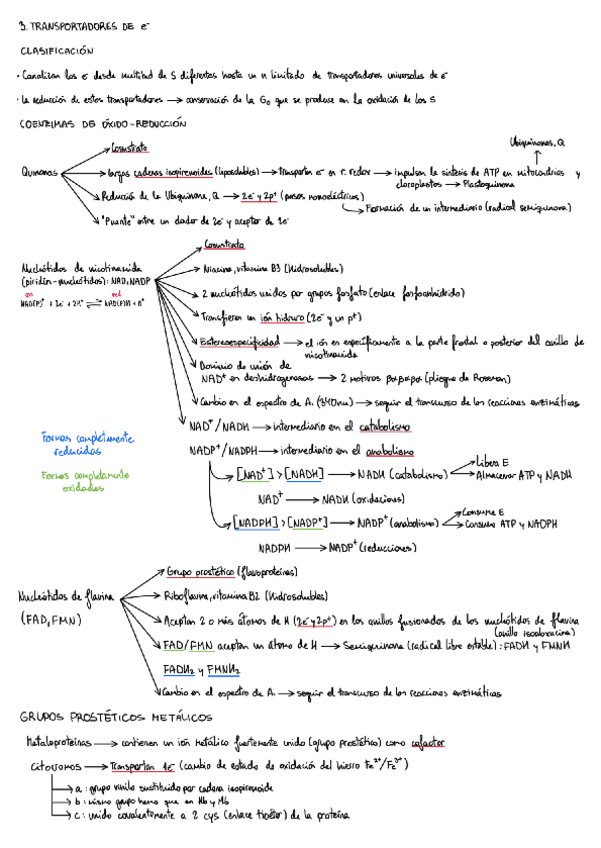 3. TRANSPORTADORES DE e⁻
CLASIFICACIÓN
· Canalizan los e⁻ desde multitud de S diferentes hasta un nº limitado de transportadores universales de e⁻
· La reducción de estos transportadores → conservación de la G₀ que se produce en la oxidación de los S
COENZIMAS DE ÓXIDO-REDUCCIÓN
Cosustrato
Ubiquinonas, Q
Quinonas
Largas cadenas isoprenoides (liposolubles) → Transportan e⁻ en r. redox → impulsan la síntesis de ATP en mitocondrias y
cloroplastos → Plastoquinona
Reducción de la Ubiquinona, Q → 2e⁻ y 2p⁺ (pasos monoeléctricos)
Formación de un intermediario (radical semiquinona)
"Puente" entre un dador de 2e⁻ y aceptor de 1e⁻
Cosustrato
Nucleótidos de nicotinamida
(piridín-nucleótidos): NAD, NADP
Niacina, vitamina B3 (Hidrosolubles)
oxi red
NAD(P)⁺ + 2e⁻ + 2H⁺ ⇌ NAD(P)H + H⁺
2 nucleótidos unidos por grupos fosfato (enlace fosfoanhídrido)
Transfieren un ión hidruro (2e⁻ y un p⁺)
Estereoespecificidad → el ión es específicamente a la parte frontal o posterior del anillo de
nicotinamida
Dominio de unión de
NAD⁺ en deshidrogenasas → 2 motivos βαβαβα (pliegue de Rossman)
Cambio en el espectro de A. (340nm) → seguir el transcurso de las reacciones enzimáticas
NAD⁺/NADH → intermediario en el catabolismo
Formas completamente
reducidas
NADP⁺/NADPH → intermediario en el anabolismo
Formas completamente
oxidadas
[NAD⁺] > [NADH] → NADH (catabolismo)
Libera E
Almacenar ATP y NADH
NAD⁺ → NADH (oxidaciones)
[NADPH] > [NADP⁺] → NADP⁺ (anabolismo)
Consume E
Consume ATP y NADPH
NADPH → NADP⁺ (reducciones)
Grupo prostético (flavoproteínas)
Nucleótidos de flavina
(FAD, FMN)
Riboflavina, vitamina B2 (Hidrosolubles)
Aceptan 2 o más átomos de H (2e⁻ y 2p⁺) en los anillos fusionados de los nucleótidos de flavina
(anillo isoaloxacina)
FAD/FMN aceptan un átomo de H → Semiquinona (radical libre estable): FADH y FMNH
FADH₂ y FMNH₂
Cambio en el espectro de A. → seguir el transcurso de las reacciones enzimáticas
GRUPOS PROSTÉTICOS METÁLICOS
Metaloproteínas → contienen un ión metálico fuertemente unido (grupo prostético) como cofactor
Citocromos → Transportan 1e⁻ (cambio de estado de oxidación del hierro Fe²⁺/Fe³⁺)
a: grupo vinilo sustituido por cadena isoprenoide
b: mismo grupo hemo que en Hb y Mb
c: unido covalentemente a 2 cys (enlace tioéter) de la proteína